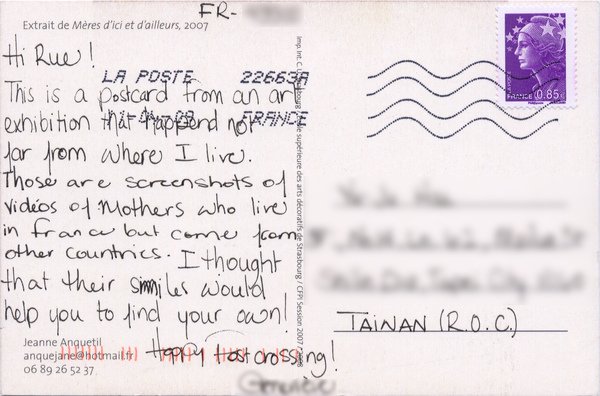 FR-
Extrait de Mères d'ici et d'ailleurs, 2007
Hi Rue!
LA POSTE 22663A
This is a postcard from an art
exhibition that happend not
FRANCE
far from where I live.
Those are screenshots of
videos of Mothers who live
in france but come from
other countries. I thought
that their smiles would
help you to find your own!
Happy Postcrossing!
Jeanne Anquetil
anquejane@hotmail.fr
06 89 26 52 37
supérieure des arts décoratifs de Strasbourg / CFPI Session 2007
FRANCE 0,85€
TAINAN (R.O.C.)